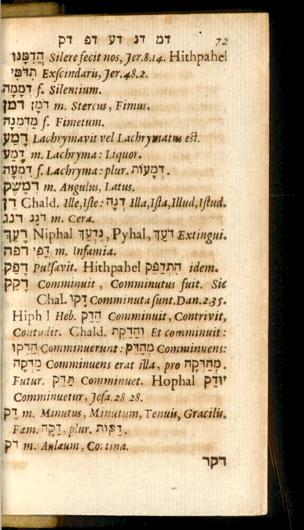 דמ דנ דע דפ דק 72
הֲדִמָּנוּ Silere fecit nos, Jer.8.14. Hithpahel
תִדֹּמִּי Exscindaris, Jer.48.2.
דֻּמָּמָה f. Silentium.
דמן דֹּמֶן m. Stercus, Fimus.
מַדְמֵנָה f. Fimetum.
דָּמַע Lachrymavit vel Lachrymatus est.
דֶּמַע m. Lachryma: Liquor.
דִּמְעָה f. Lachryma: plur. דְּמָעוֹת.
דְּמֶשֶׁק m. Angulus, Latus.
דֵּן Chald. Ille, Iste: דְּנָה Illa, Ista, Illud, Istud.
דנג דֹּנַג m. Cera.
דָּעַךְ Niphal נִדְעַךְ, Pyhal, דֹּעַךְ Extingui.
דפה דֳּפִי m. Infamia.
דָּפַק Pulsavit. Hithpahel הִתְדַּפֵּק idem.
דָּקַק Comminuit, Comminutus fuit. Sic
Chal. דָּקוּ Comminuta sunt. Dan. 2.35.
Hiph ! Heb. הֵדַק Comminuit, Contrivit,
Contudit. Chald. וְהַדֶּקֶת Et comminuit:
הַדִּקוּ Comminuerunt: מְהַדֵּק Comminuens:
מַדְּקָה Comminuens erat illa, pro מְהַדְּקָה.
Futur. תַּדִּק Comminuet. Hophal יוּדַק
Comminuetur, Jesa. 28 28.
דַּק m. Minutus, Minutum, Tenuis, Gracilis.
Fœm. דַּקָּה. plur. דַּקּוֹת.
דֹּק m. Aulæum, Cortina.
דקר